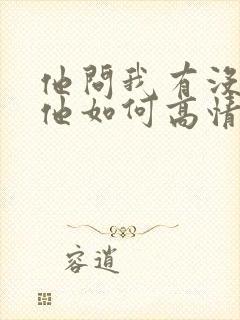 他問我有没
他如何高情
容逍